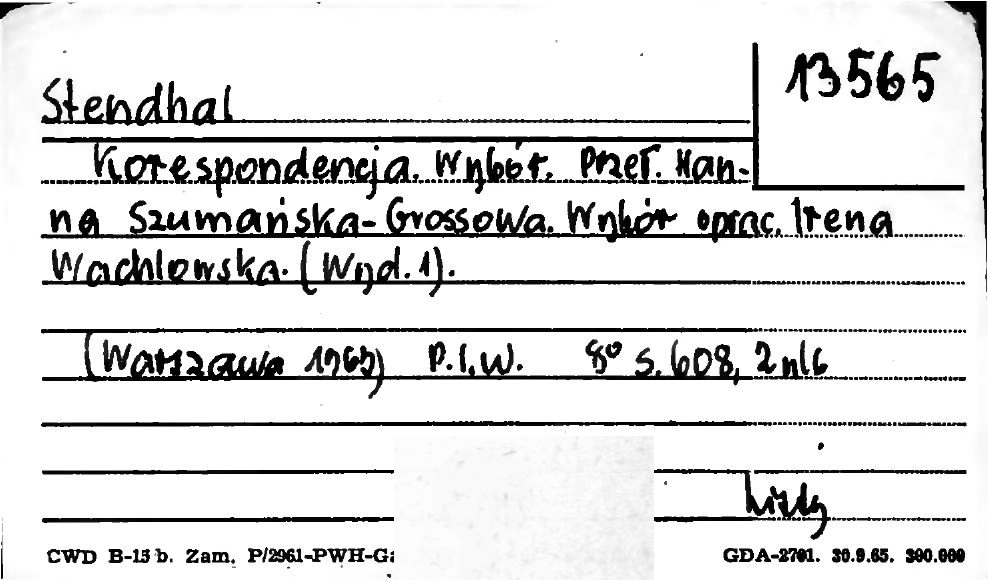 13565
Stendhal
Korespondencja. Wybór. Przeł. Han-
na Szumańska-Grossowa. Wybór oprac. Irena
Wachlowska. (Wyd. 1).
(Warszawa 1963) P.I.W. 8° s. 608, 2 nlb
CWD B-15 b. Zam. P/2961-PWH-Ga
GDA-2701. 30.9.65. 300.000